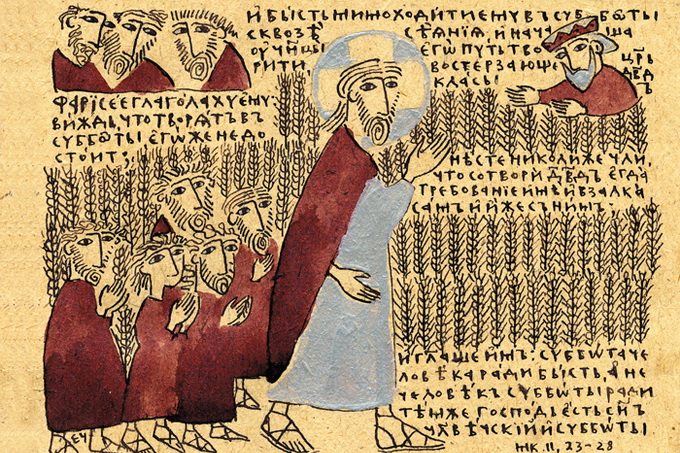 И БЫСТЬ МИМОХОДИТИ ЕМУ В СУББѠТЫ
СКВОЗѢ СѢЯНІЯ, И НАЧАША
ОУЧН҃ЦЫ ЕГѠ ПУТЬ ТВО
РИТИ, ВОСТЕРЗАЮЩЕ
КЛАСЫ
ЦР҃Ь
ДВ҃ДЪ
ФАРІСЕЕ ГЛАГОЛАХУ ЕМУ:
ВИЖДЬ, ЧТО ТВОРѦТЪ В
СУББѠТЫ ЕГѠЖЕ НЕ ДО
СТОИТ:
НѢСТЕ НИКОЛИЖЕ ЧЛИ,
ЧТО СОТВОРИ ДВ҃ДЪ ЕГДА
ТРЕБОВАНІЕ ИМѢ И ВЗАЛКА
САМЪ И ИЖЕ С НИМЪ:
И ГЛАШЕ ИМ: СУББѠТА ЧЕ
ЛОВѢКА РАДИ БЫСТЬ, А НЕ
ЧЕЛОВѢКЪ СУББѠТЫ РАДИ
ТѢМЖЕ ГОСПОДЬ ЕСТЬ СН҃Ъ
ЧЛ҃ВѢЧСКІЙ И СУББѠТЫ
МК. II, 23-28
ЕЧ